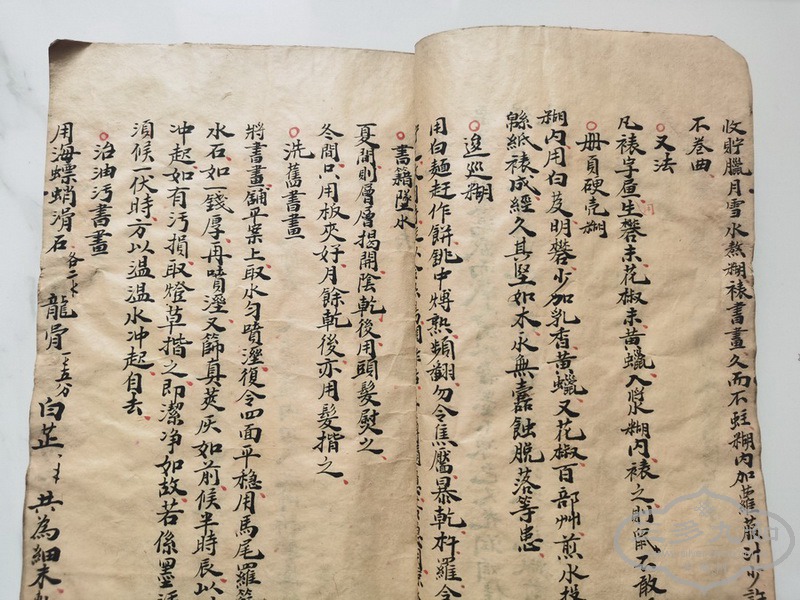 收貯臘月雪水熬糊裱書畫久而不蛀糊內加蘿蔔汁少許
不卷曲
又法
凡裱字畫生礬末花椒末黃蠟入漿糊內裱之則鼠不敢
冊頁硬壳糊
糊內用白芨明礬少加乳香黃蠟又花椒百部艸煎水投
緜紙裱成經久其堅如木永無蠹蝕脫落等患
逡巡糊
用白麵赶作餅銚中煿熟頻翻勿令焦黶暴乾杵羅令
書籍墜水
夏間則層層揭開陰乾後用頭髮熨之
冬間只用板夾好月餘乾後亦用髮揩之
洗舊書畫
將書畫鋪平案上取水勻噴溼復令四面平穩用馬尾羅篩
水石如一錢厚再噴溼又篩真炭灰如前候半時辰以
沖起如有汚損取燈草揩之即潔净如故若係墨汚
須候一伏時方以温温水冲起自去
治油汚書畫
用海螵蛸滑石各二龍骨一五分白芷共為細末